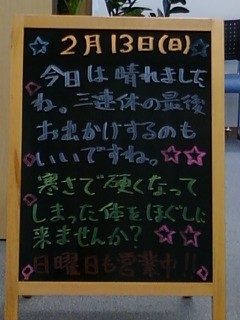 2月13日(日)
今日は晴れました
ね。三連休の最後
お出かけするのも
いいですね。☆☆
寒さで硬くなって
しまった体をほぐしに
来ませんか?☆
日曜日も営業中!!